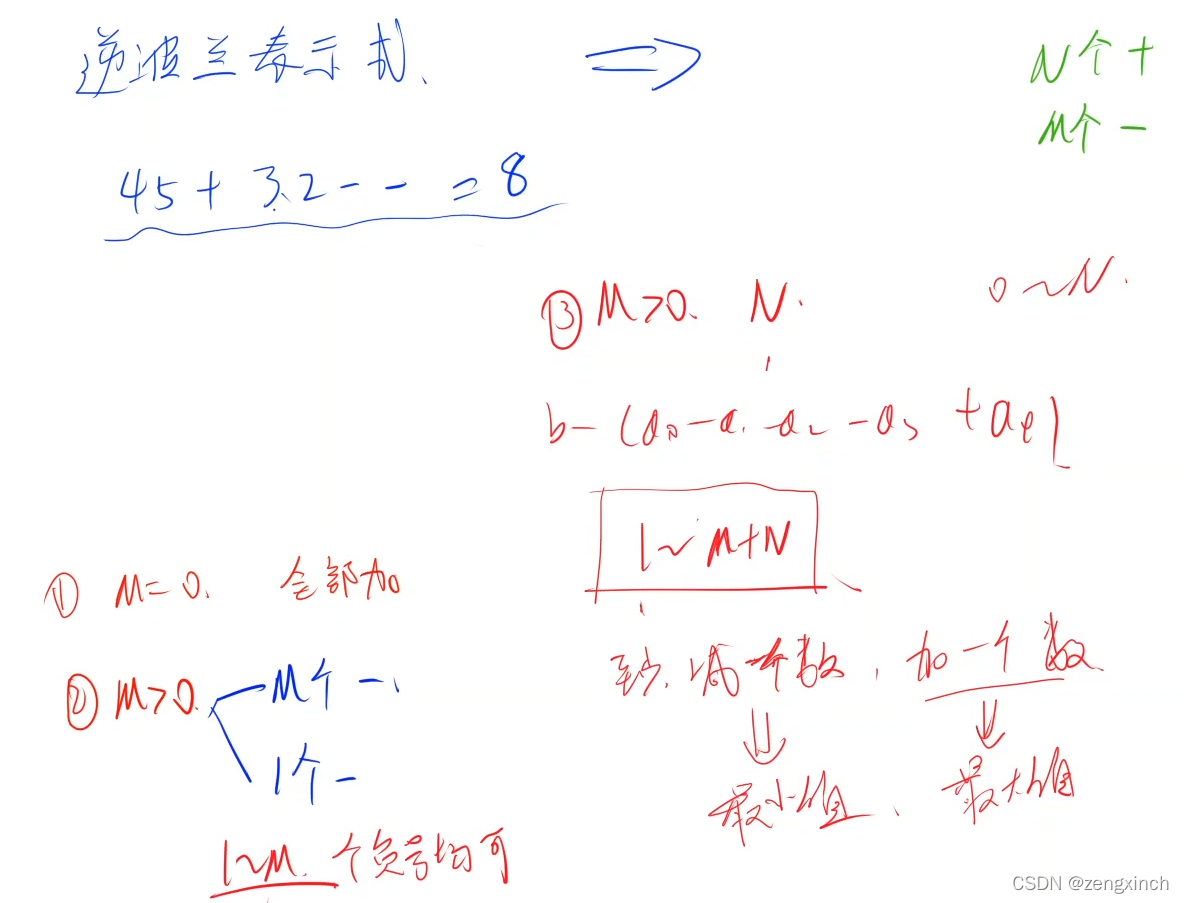 逆波兰表示式、 ⇒
N个 +
M个 −
45 + 3、2 − − = 8
③ M>0、 N. 0～N.
b − (a₀ − a₁ − a₂ − a₃ + a₄)
1～M+N
① M=0. 全部加
至少、减一个数，加一个数
② M>0. M个 −、
1个 −
最小值、最大值
1～M. 个负号均可
CSDN @zengxinch